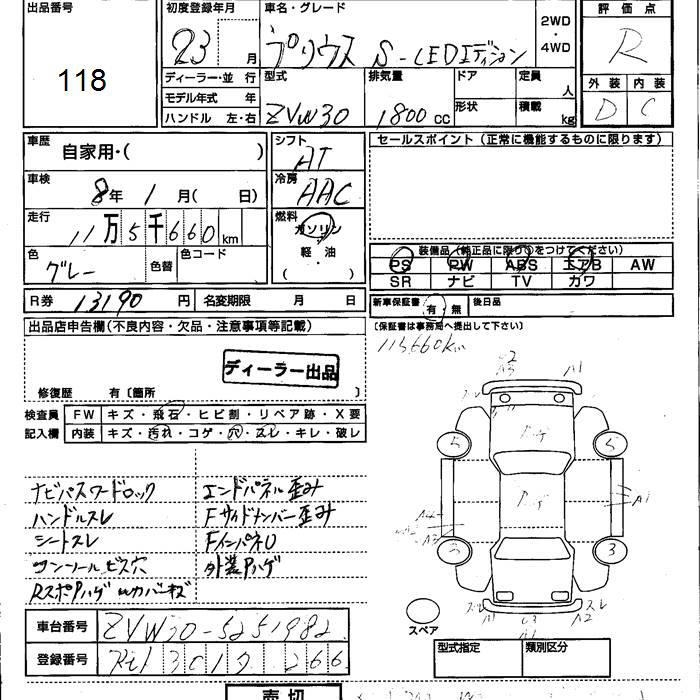 出品番号
118
初度登録年月
23 月
車名・グレード
プリウス S-LEDエディション
2WD
・
4WD
評価点
R
外装 内装
D C
ディーラー・並 行
モデル年式 年
ハンドル 左・右
型式
ZVW30
排気量
1800 cc
ドア
形状
定員
人
積載
kg
車歴
自家用・( )
車検
8年 1月( 日)
走行
11万5千660km
色
グレー
色替
色コード
シフト
AT
冷房
AAC
燃料
ガソリン
軽油
( ・ )
セールスポイント(正常に機能するものに限ります)
装備品(純正品に限り○をつけてください)
PS PW ABS エアB AW
SR ナビ TV カワ
R券 13190円
名変期限 月 日
新車保証書 有・無 後日品
(保証書は事務局へ提出して下さい)
115660km
出品店申告欄(不良内容・欠品・注意事項等記載)
ディーラー出品
修復歴 有〔箇所 〕
検査員
記入欄
FW キズ・飛石・ヒビ割・リペア跡・X要
内装 キズ・汚れ・コゲ・穴・スレ・キレ・破レ
ナビパスワードロック
エンドパネル歪み
ハンドルスレ
Fサイドメンバー歪み
シートスレ
FインパネU
コンソールビス穴
外装Pハゲ
スペア
車台番号 ZVW30-5251982
登録番号
型式指定 類別区分
売切